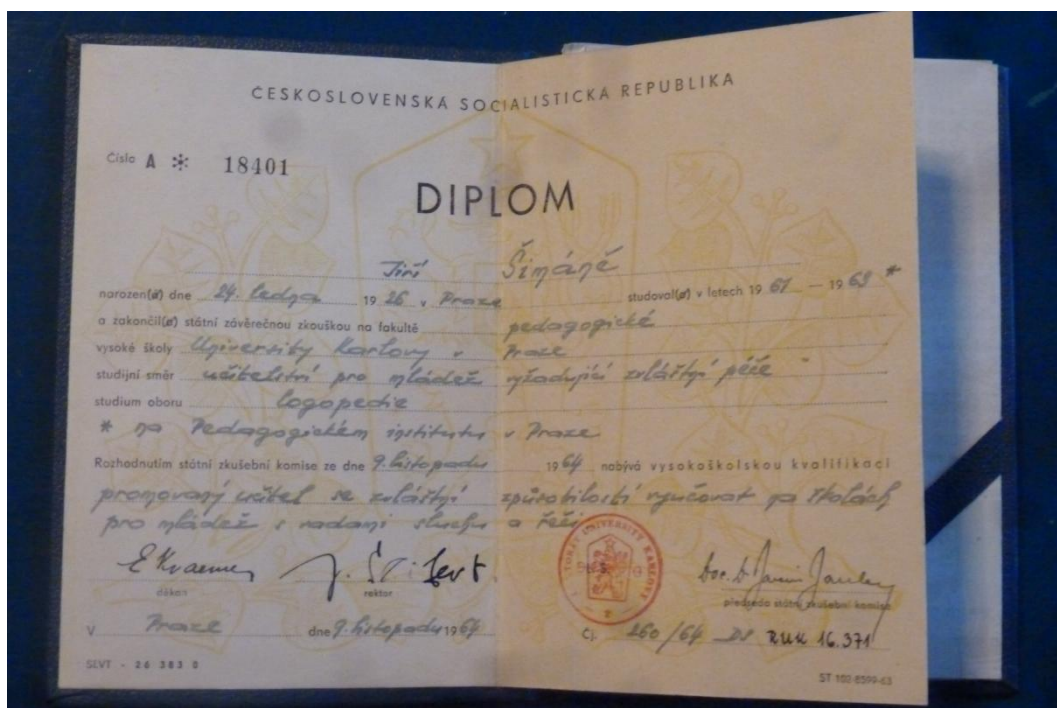 ČESKOSLOVENSKÁ SOCIALISTICKÁ REPUBLIKA
Číslo A * 18401
DIPLOM
Jiří Šimáně
narozen(a) dne 24. ledna 1926 v Praze studoval(a) v letech 1961 — 1963 *
a zakončil(a) státní závěrečnou zkouškou na fakultě pedagogické
vysoké školy University Karlovy v Praze
studijní směr učitelství pro mládež vyžadující zvláštní péče
studium oboru logopedie
* na Pedagogickém institutu v Praze
Rozhodnutím státní zkušební komise ze dne 9. listopadu 1964 nabývá vysokoškolskou kvalifikaci
promovaný učitel se zvláštní způsobilostí vyučovat na školách
pro mládež s vadami sluchu a řeči
děkan rektor předseda státní zkušební komise
V Praze dne 9. listopadu 1964 Čj. 260/64 DS RUK 16.371
SEVT - 26 383 0 ST 102-8599-63